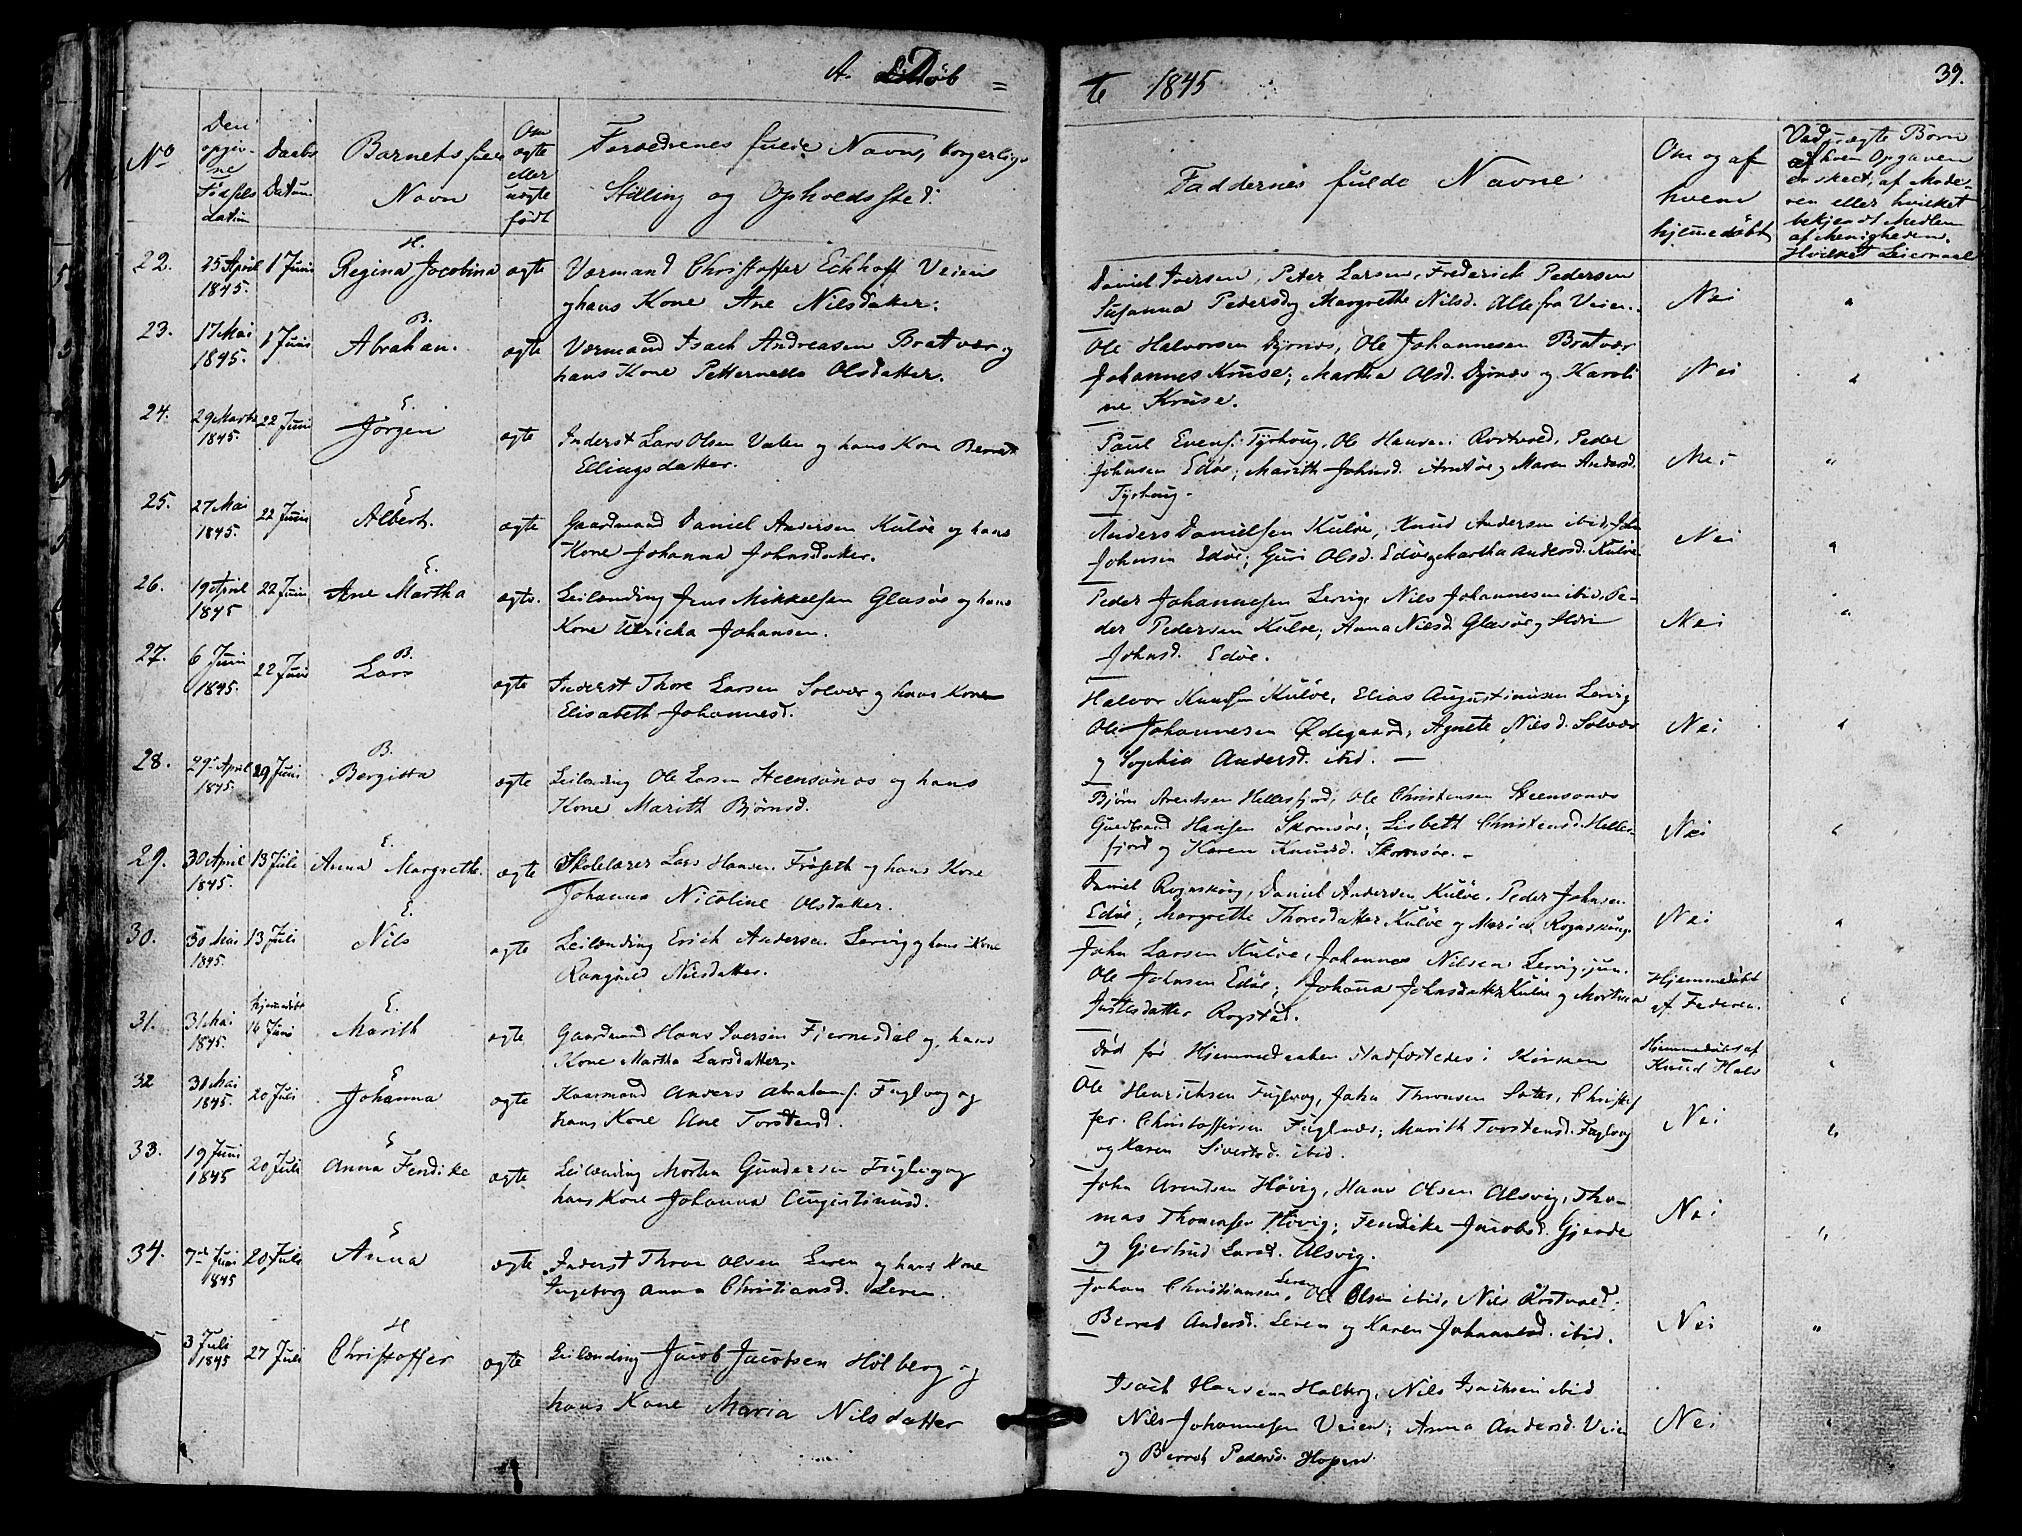 A. Døb =
te 1845
39.
No
Den opgivne Fødsels datum
Daabs Datum
Barnets fulde Navn
Om ægte eller uægte født
Forældrenes fulde Navne, borgerlige Stilling og Opholdssted.
Faddernes fulde Navne
Om og af hvem hjemmedøbt
Ved uægte Børn af hvem Opgaven er skeet, af Moderen eller hvilket bekjendt Medlem af Menigheden. Hvilket Leiermaal
22.
25 April 1845.
1 Juni
H.
Regina Jacobina
ægte
Værmand Christoffer Eckhoff Veien
og hans Kone Ane Nilsdatter.
Daniel Iversen, Peter Larsen, Frederich Pedersen
Susanna Pedersd og Margrethe Nilsd. Alle fra Veien.
Nei
"
23.
17 Mai 1845.
1 Juni
B.
Abraham.
ægte
Værmand Isach Andreasen Bratvær og
hans Kone Petternella Olsdatter.
Ole Halvorsen Dyrnæs, Ole Johannesen Bratvær
Johannes Kruse; Martha Olsd. Dyrnæs og Karoli
ne Kruse.
Nei
"
24.
29 Marts 1845.
22 Juni
E.
Jørgen
ægte
Inderst Lars Olsen Valen og hans Kone Berret
Ellingsdatter.
Paul Evens. Tyrhoug, Ole Hansen Rostvold, Peder
Johnsen Edøe; Marith Johnsd. Arntøe og Maren Andersd.
Tyrhoug.
Nei
"
25.
27 Mai 1845.
22 Juni
E
Albert.
ægte
Gaardmand Daniel Andersen Kuløe og hans
Kone Johanna Johnsdatter.
Anders Danielsen Kuløe, Knud Andersen ibid, John
Johnsen Edøe; Guri Olsd. Edøe og Martha Andersd. Kuløe
Nei
"
26.
19 April 1845
22 Juni
E.
Ane Martha
ægte.
Leilænding Jens Mikkelsen Glasøe og hans
Kone Ulricha Johansen.
Peder Johannesen Lervig, Nils Johannesen ibid, Pe-
der Pedersen Kuløe; Anna Nilsd. Glasøe og
Johnsd. Edøe.
Nei
"
27.
6 Juni 1845.
22 Juni
B.
Lars
ægte
Inderst Thore Larsen Solvær og hans Kone
Elisabeth Johannesd.
Halvor Knudsen Kuløe, Elias Augustinusen Lervig
Ole Johannesen Ødegaard, Agnete Nilsd. Solvær
og Sophia Andersd. ibid. —
Nei
"
28.
29 April 1845.
29 Juni
B.
Bergitta
ægte
Leilænding Ole Larsen Steensønæs og hans
Kone Marith Bjørnsd.
Bjørn Arentsen Hellesfjord, Ole Christensen Steensonæs
Guldbrand Hansen Skomsøe; Lisbeth Christensd. Helles-
fjord og Karen Knudsd. Skomsøe. -
Nei
"
29.
30 April 1845.
13 Juli
E.
Anna Margrethe.
ægte
Skolelærer Lars Hansen Frøseth og hans Kone
Johanna Nicoline Olsdatter.
Daniel Rognskoug, Daniel Andersen Kuløe, Peder Johnsen
Edøe; Margrethe Thoresdatter Kuløe og Maria Rognskoug.
Nei
"
30.
30 Mai 1845.
13 Juli
E.
Nils
ægte
Leilænding Erich Andersen Lervig og hans Kone
Rangnild Nilsdatter.
John Larsen Kuløe, Johannes Nilsen Lervig, jun.
Ole Johnsen Edøe; Johanna Johnsdatter Kuløe og Martina
Justesdatter Rogstad.
Hjemmedøbt
af Faderen.
"
31.
31 Mai 1845.
hjemmedøbt 14 Juni
E.
Marith
ægte
Gaardmand Hans Iversen Fjernesdal og hans
Kone Martha Larsdatter.
Død før Hjemmedaaben stadfæstedes i Kirken
Hjemmedøbt af
Knud Hals
"
32
30 Mai 1845.
20 Juli
E
Johanna
ægte
Huusmand Anders Abrahams. Fuglvog og
hans Kone Ane Torstensd.
Ole Henrichsen Fuglvog, John Thronsen Sætre, Christof
fer Christoffersen Fuglnæs; Marith Torstensd. Fuglvog
og Karen Sivertsd. ibid.
Nei
"
33.
19 Juni 1845
20 Juli
E
Anna Fendike
ægte
Leilænding Morten Gundersen Fuglvog og
hans Kone Johanna Augustinusd.
John Arentsen Høvig, Hans Olsen Alsvig, Tho-
mas Thomesen Høvig; Fendike Jacobsd. Gjerde
og Gjertrud Larsd. Alsvig.
Nei
"
34.
7de Juni 1845
20 Juli
E
Anna
ægte
Inderst Thore Olsen Leren og hans Kone
Ingeborg Anna Christiansd. Leren.
Johan Christiansen Leren, Ole Olsen ibid, Nils Rostvold;
Berret Andersd. Leren og Karen Johannesd. ibid.
Nei
"
5
3 Juli 1845
27 Juli
H
Christoffer
ægte
Leilænding Jacob Jacobsen Holberg og
hans Kone Maria Nilsdatter
Isach Hansen Holberg, Nils Isachsen ibid
Nils Johannesen Veien; Anna Andersd. Veien
og Berret Pedersd. Hopen.
Nei
"